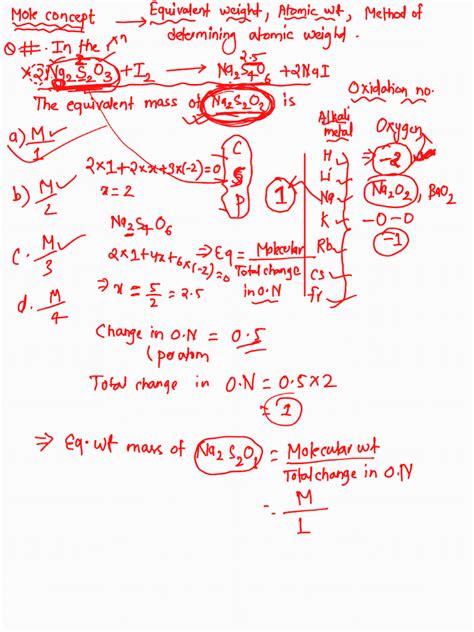 Mole concept → Equivalent weight, Atomic wt, Method of
determining atomic weight.
Q #. In the rxn
2Na2S2O3 + I2 → Na2S4O6 + 2NaI
2 2.5
The equivalent mass of Na2S2O3 is
a) M/1
b) M/2
c. M/3
d. M/4
2×1+2×x+3×(-2)=0
x=2
Na2S4O6
2×1+4x+6×(-2)=0
⇒ x = 5/2 = 2.5
C
S
P
⇒ Eq = Molecular / Total change in O.N
Oxidation no.
Alkali metal
H
Li
Na
K
Rb
Cs
Fr
1
Oxygen
-2
Na2O2, BaO2
-O-O
-1
Change in O.N = 0.5
(per atom
Total change in O.N = 0.5×2
= 1
⇒ Eq. wt mass of Na2S2O3 = Molecular wt / Total change in O.N
= M/1